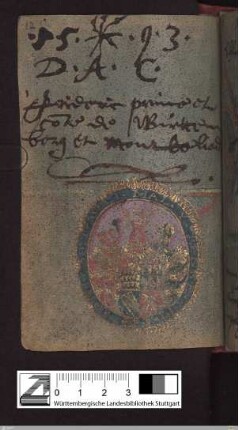 ·15·9·3·
D. A. C.
prince et
conte de Wirtem
berg et Montbeliard
0 1 2 3
Württembergische Landesbibliothek Stuttgart